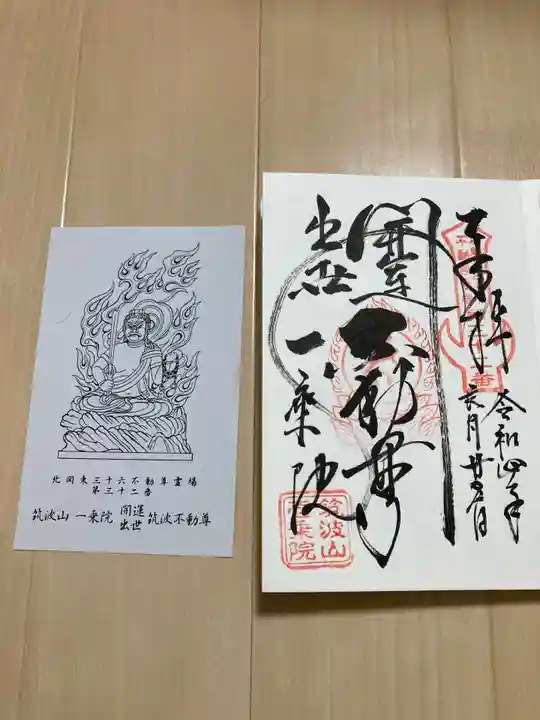 北関東三十六不動尊霊場
第三十二番
筑波山 一乗院 開運出世 筑波不動尊
奉拝
令和四年
六月廿
日
開運
出世
不動尊
一乗院
筑波山
乗院
番